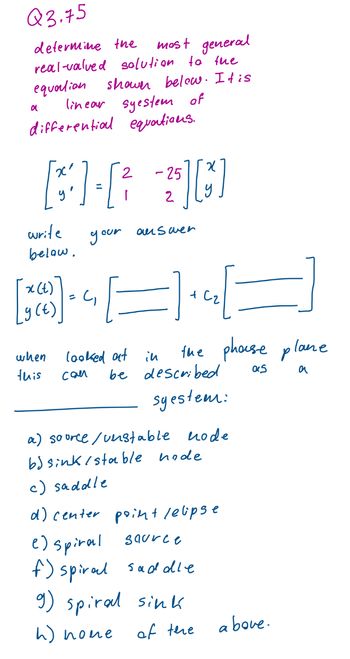 Q3.75
determine the most general
real-valued solution to the
equation shown below. It is
a linear syestem of
differential equations.
[x' y'] = [2 -25 1 2] [x y]
write your answer
below.
[x(t) y(t)] = C1 [__ __] + C2 [__ __]
when looked at in the phase plane
this can be described as a
__________ syestem:
a) source/unstable node
b) sink/stable node
c) saddle
d) center point/elipse
e) spiral source
f) spiral saddle
g) spiral sink
h) none of the above.